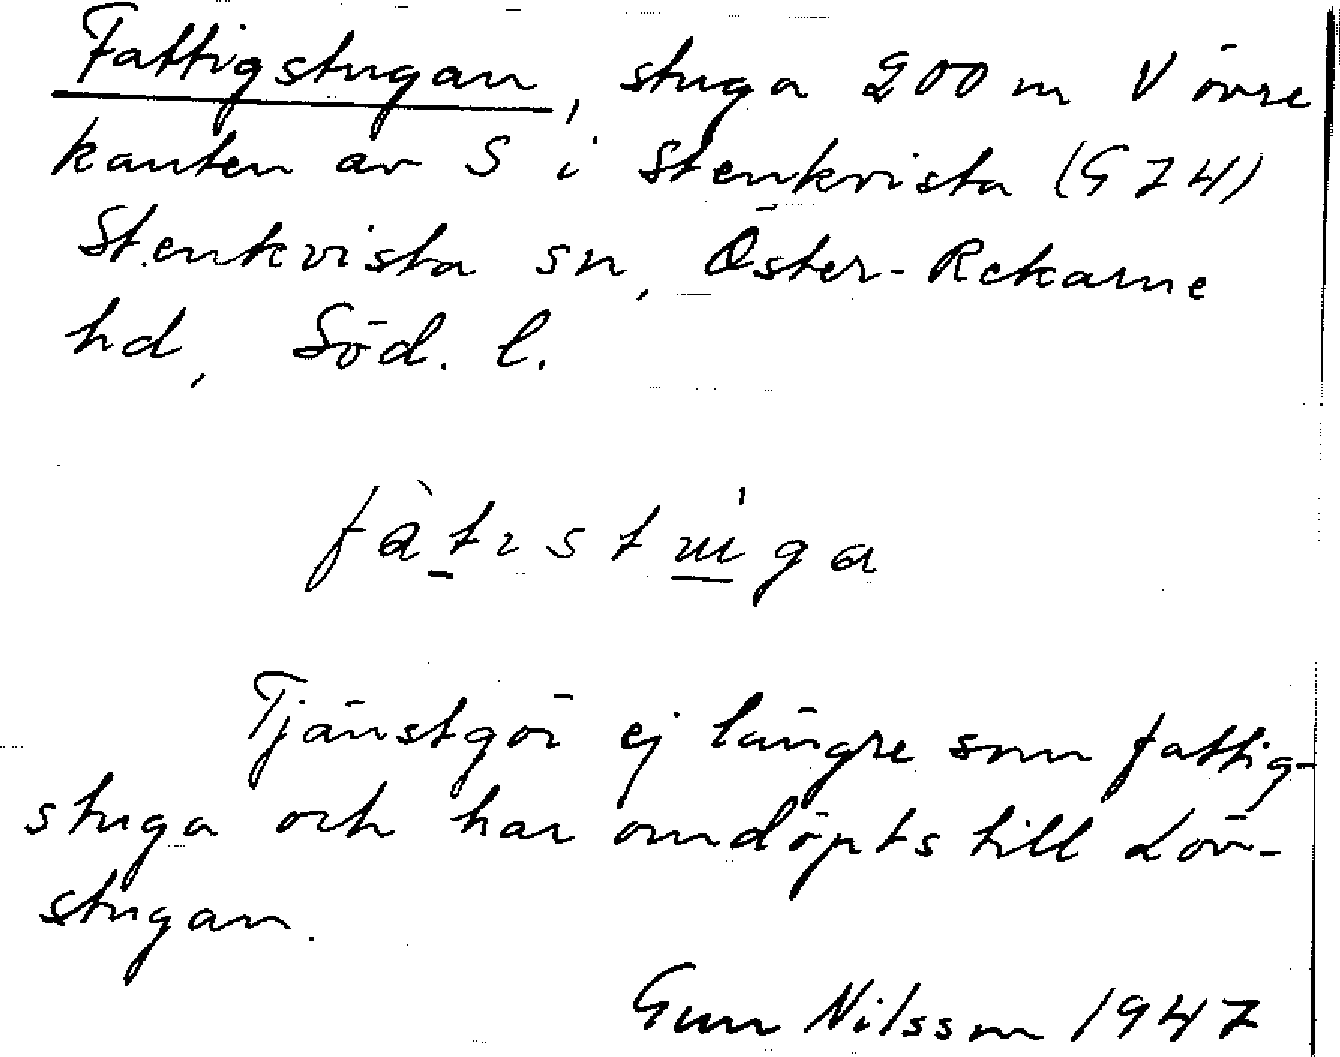 Fattigstugan, stuga 200 m V övre
kanten av S i Stenkvista (G 74)
Stenkvista sn, Öster-Rekarne
hd, Söd. l.
Tjänstgör ej längre som fattig-
stuga och har omdöpts till Löv-
stugan.
Gun Nilsson 1947